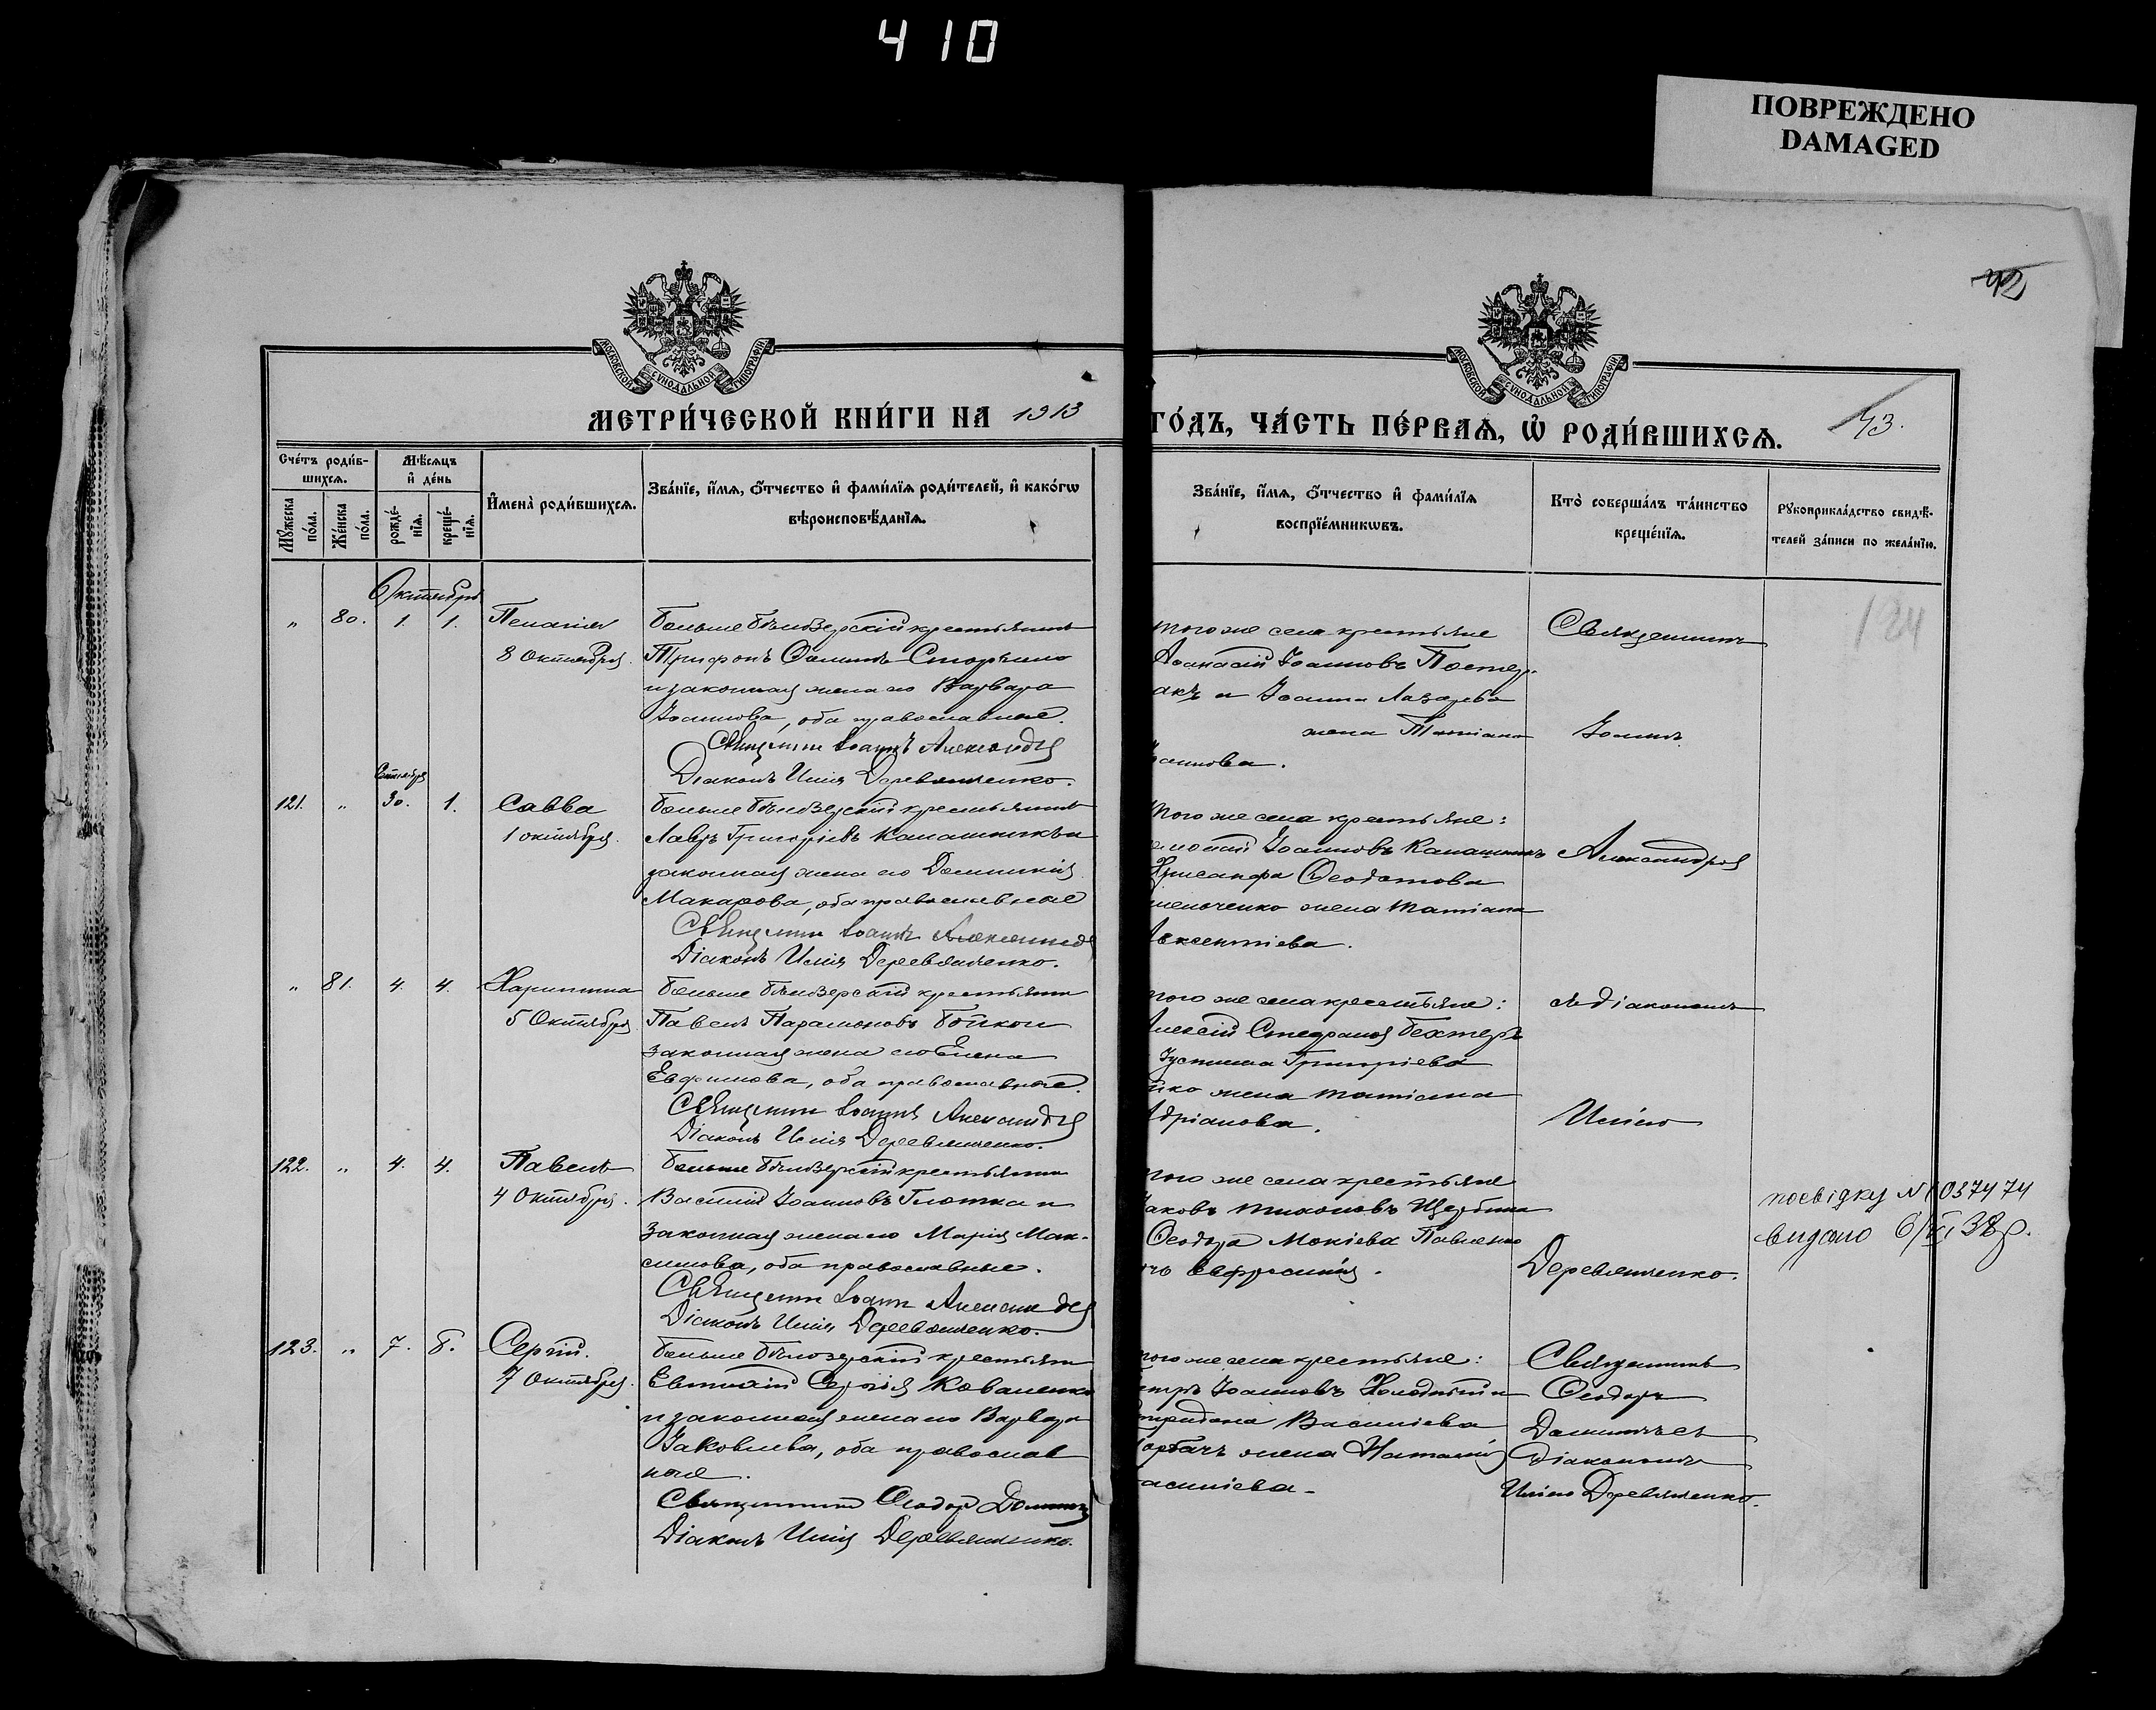 410
ПОВРЕЖДЕНО
DAMAGED
42
МОСКОВСКОЙ СѴНОДАЛЬНОЙ ТИПОГРАФІИ
МОСКОВСКОЙ СѴНОДАЛЬНОЙ ТИПОГРАФІИ
МЕТРИ́ЧЕСКОЙ КНИ́ГИ НА 1913
ГО́ДЪ, ЧА́СТЬ ПЕ́РВАѦ, Ѡ҆ РОДИ́ВШИХСѦ.
43.
Сче́тъ роди́в-
шихсѧ.
Мѣ́сѧцъ
и҆ де́нь
Мꙋ́жеска
по́ла.
Же́нска
по́ла.
рожде́-
нїѧ.
креще́-
нїѧ.
И҆мена̀ роди́вшихсѧ.
Зва́нїе, и҆́мѧ, ѻ҆́тчество и҆ фами́лїѧ роди́телей, и҆ како́гѡ
вѣроисповѣ́данїѧ.
Зва́нїе, и҆́мѧ, ѻ҆́тчество и҆ фами́лїѧ
воспрїе́мникѡвъ.
Кто̀ соверша́лъ та́инство
креще́нїѧ.
Рꙋкоприкла́дство свидѣ́-
телей за́писи по жела́нїю.
124
Октябрь
„ 80. 1. 1. Пелагія
8 Октября.
Больше Бѣлозерскій крестьянинъ
Трифонъ
и законная жена его Варвара
Іоаннова, оба православные.
Священникъ Іоаннъ Александровъ
Діаконъ Илія Деревянченко.
того же села крестьяне
Аѳанасій Іоанновъ
жена Татіана
Священникъ
Іоаннъ
Сентября
121. „ 30. 1. Савва
1 октября.
Больше Бѣлозерскій крестьянинъ
Лавръ Григоріевъ Калашникъ и
законная жена его Домникія
Макарова, оба православные
Священникъ Іоаннъ Александровъ
Діаконъ Илія Деревянченко.
того же села крестьяне:
Іоанновъ Калашникъ
жена Татіана
Авксентіева.
Александровъ
„ 81. 4. 4. Харитина
5 Октября
Больше Бѣлозерскій крестьянинъ
Павелъ Парамоновъ Бойко и
законная жена его Елена
Евфимова, оба православные.
Священникъ Іоаннъ Александровъ
Діаконъ Илія Деревянченко.
того же села крестьяне:
Алексій Стефановъ Бехтеръ
Іустина Григоріева
йко жена Татіана
Адріанова.
съ діакономъ
Иліею
122. „ 4. 4. Павелъ
4 Октября.
Больше Бѣлозерскій крестьянинъ
Василій Іоанновъ Глотка и
законная жена его Марія Мак-
симова, оба православные.
Священникъ Іоаннъ Александровъ
Діаконъ Илія Деревянченко.
того же села крестьяне
Іаковъ Тихоновъ Щербина
Ѳеодора Мокіева Павленко
чь Евфросинія.
Деревянченко.
посвідку № 037474
видано 6/VI 38 р.
123. „ 7. 8. Сергій.
7 Октября.
Больше Бѣлозерскій крестьянинъ
Евтихій Сергіевъ Коваленко
и законная жена его Варвара
Іаковлева, оба православ
ные.
Священникъ Ѳеодоръ
Діаконъ Илія Деревянченко.
того же села крестьяне:
Петръ Іоанновъ Холодный и
Спиридона Василіева
Горбачъ жена Наталія
Василіева.
Священникъ
Ѳеодоръ
діакономъ
Иліею Деревянченко.